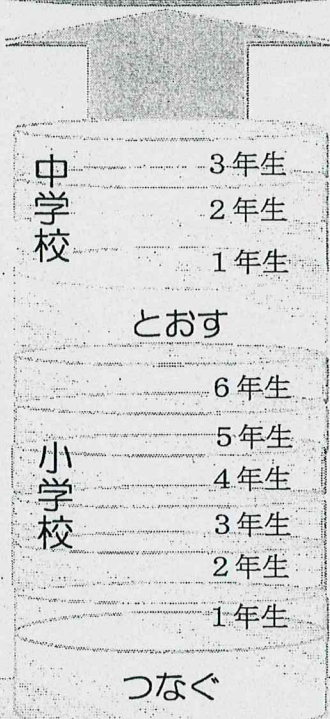 中学校
3年生
2年生
1年生
とおす
小学校
6年生
5年生
4年生
3年生
2年生
1年生
つなぐ